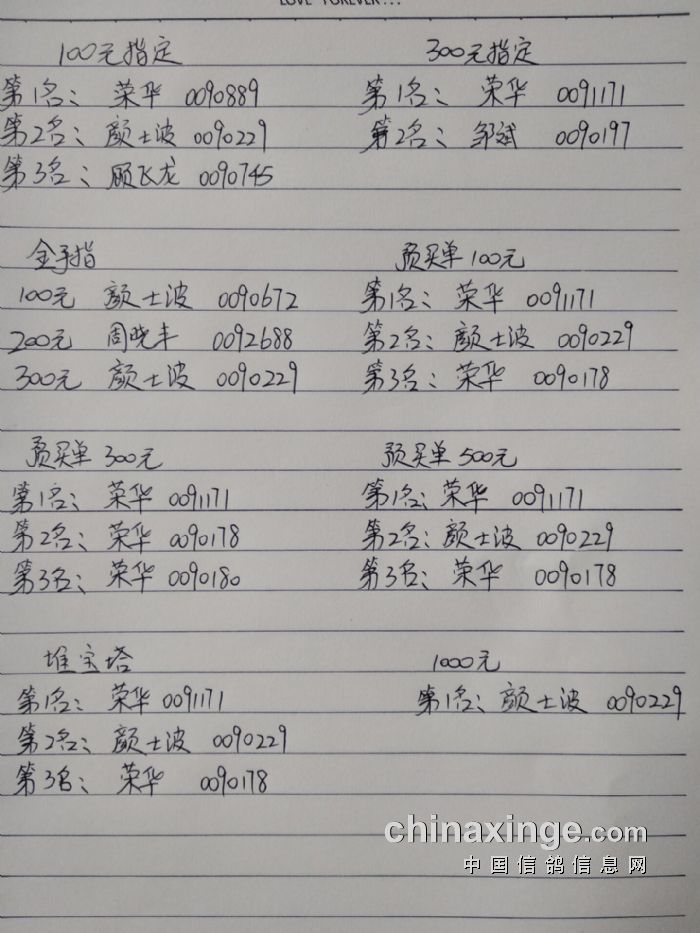 LOVE FOREVER...
100元指定
第1名：荣华 0090889
第2名：颜士波 0090229
第3名：顾飞龙 0090745
300元指定
第1名：荣华 0091171
第2名：邹斌 0090197
金手指
100元 颜士波 0090672
200元 周晓丰 0092688
300元 颜士波 0090229
预买单100元
第1名：荣华 0091171
第2名：颜士波 0090229
第3名：荣华 0090178
预买单300元
第1名：荣华 0091171
第2名：荣华 0090178
第3名：荣华 0090180
预买单500元
第1名：荣华 0091171
第2名：颜士波 0090229
第3名：荣华 0090178
堆宝塔
第1名：荣华 0091171
第2名：颜士波 0090229
第3名：荣华 0090178
1000元
第1名：颜士波 0090229
chinaxinge.com
中国信鸽信息网